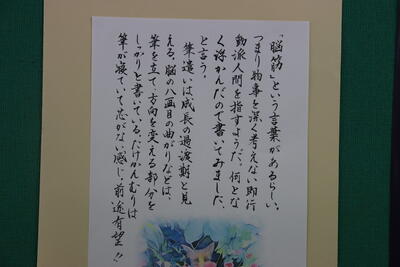 「脳筋」という言葉があるらしい。
つまり物事を深く考えない即行
動派人間を指すようだ。何とな
く浮かんだので書いてみました、
と言う。
筆遣いは成長の過渡期と見
える。脳の八画目の曲がりなどは、
筆を立て、方向を変える部分を
しっかりと書いている。たけかんむりは
筆が寝ていて芯がない感じ。前途有望!!